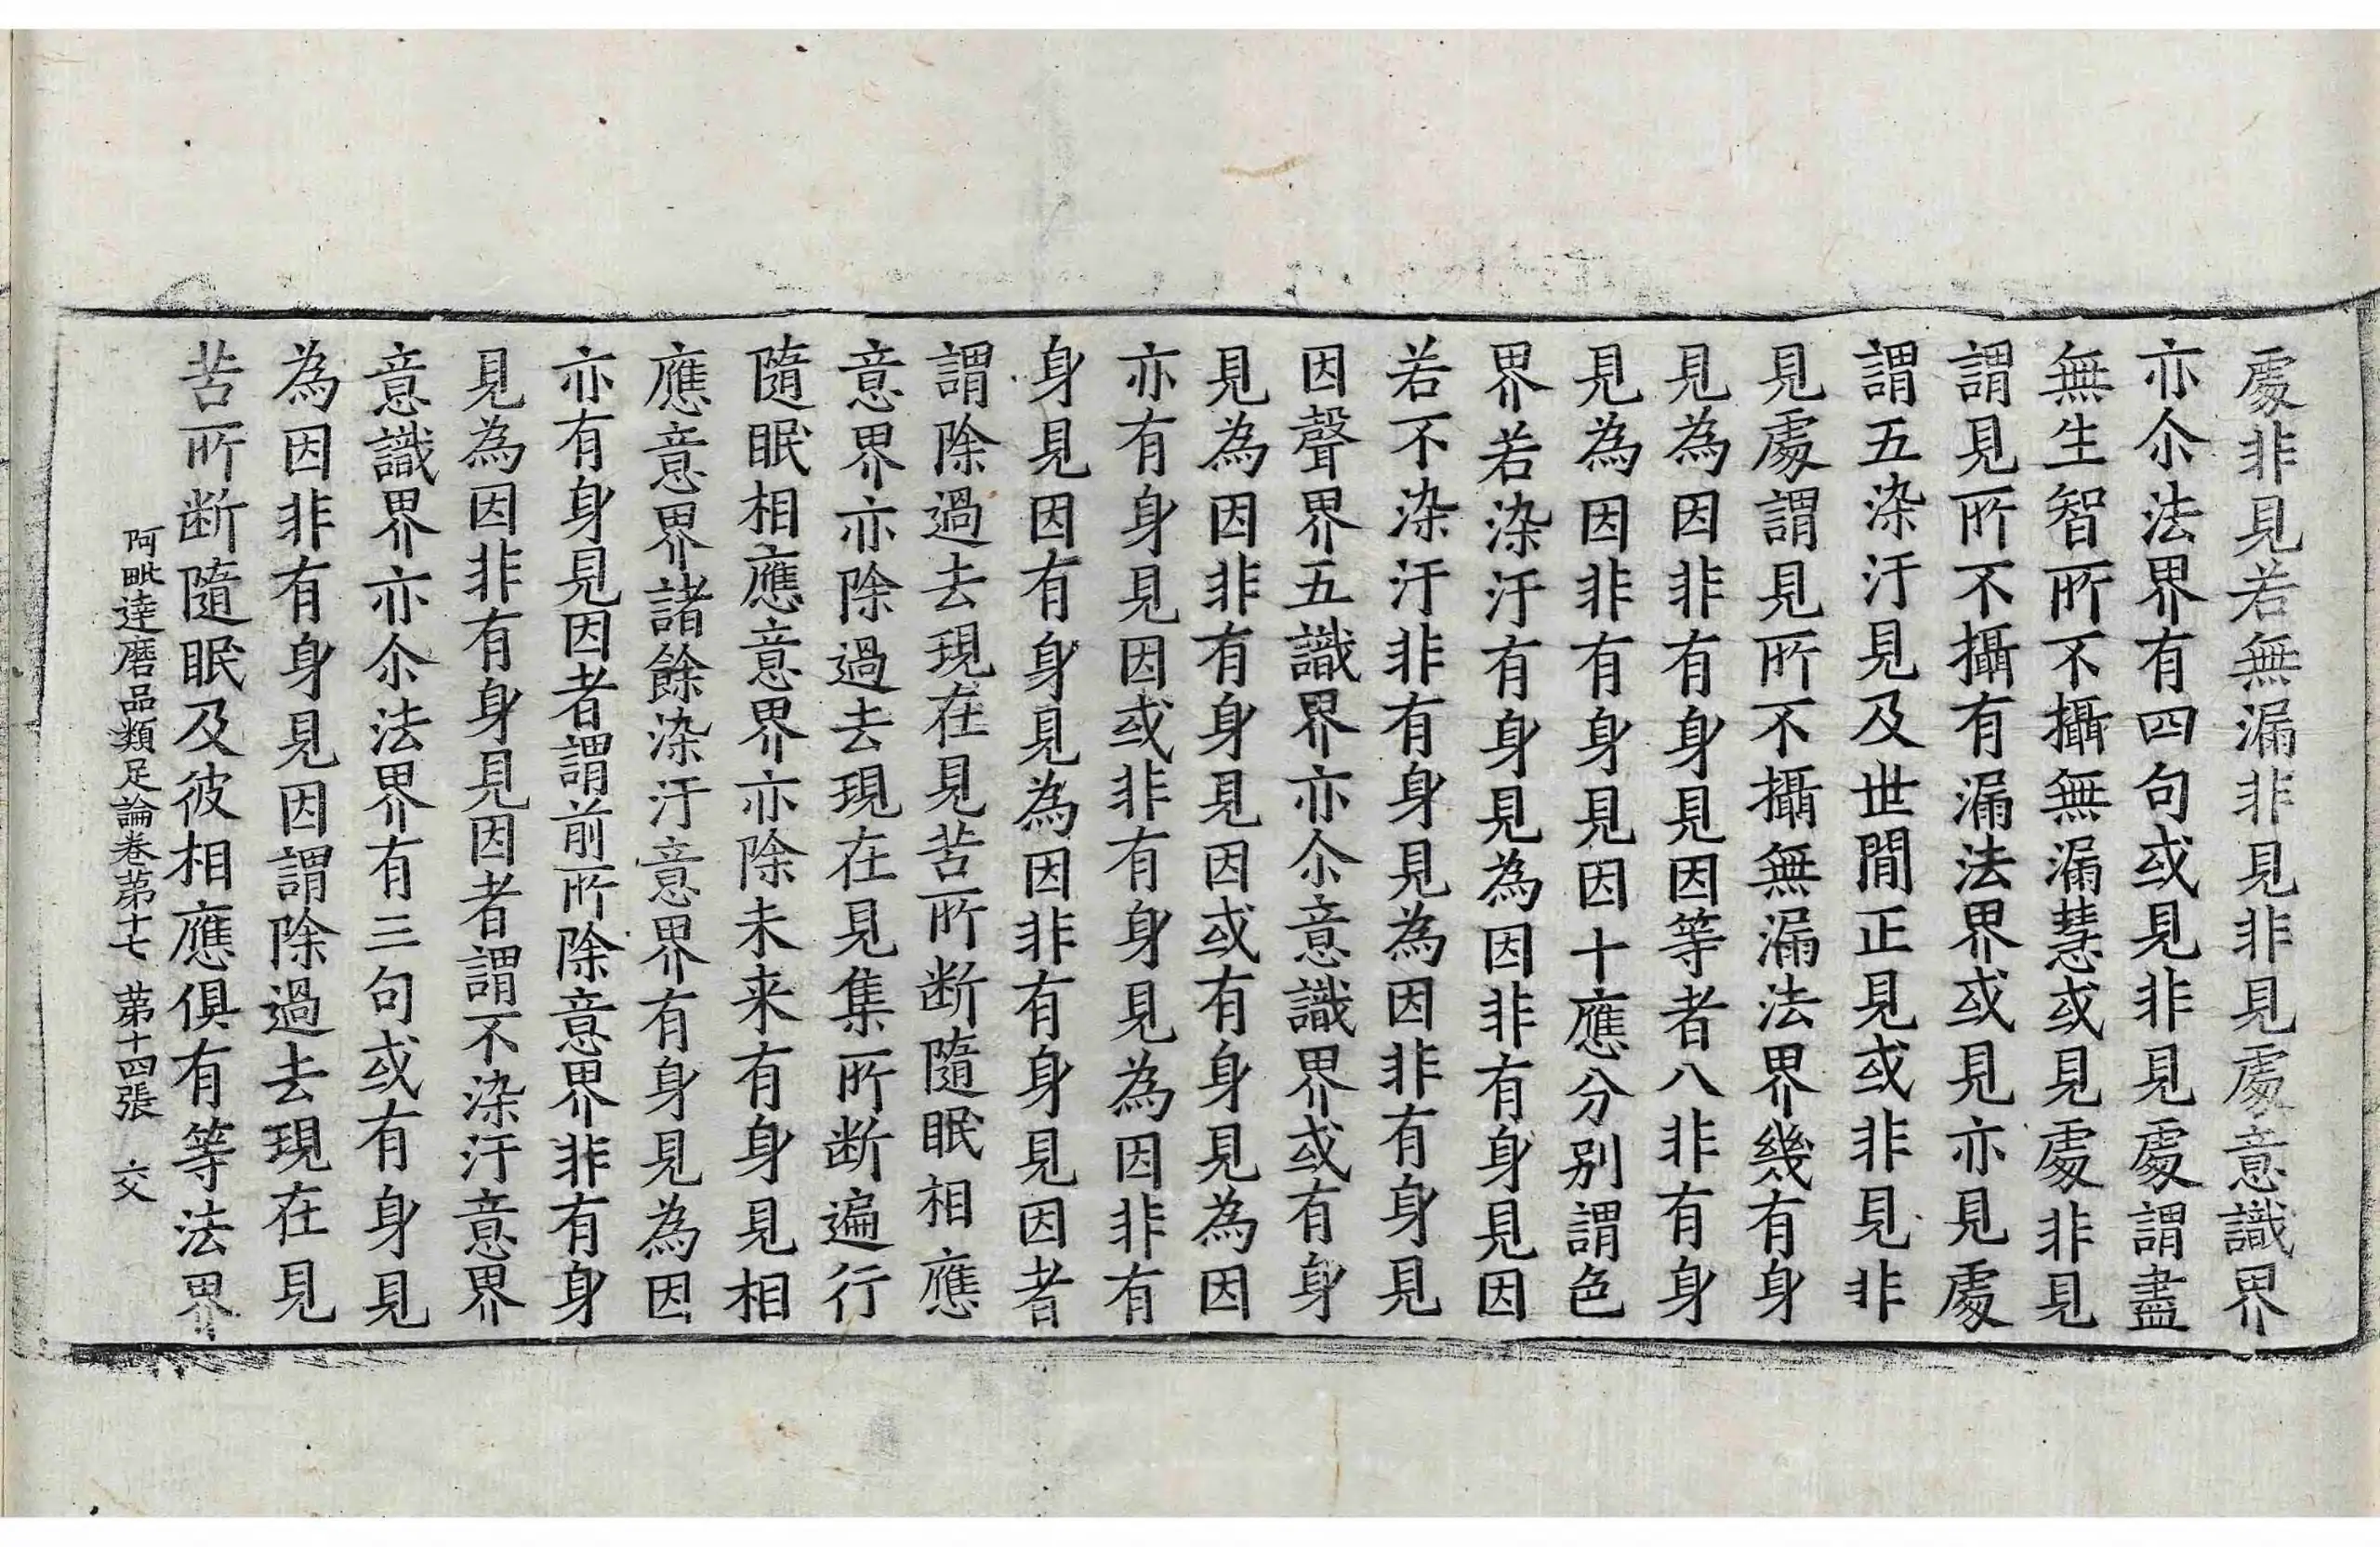 處非見若無漏非見非見處意識界
亦尒法界有四句或見非見處謂盡
無生智所不攝無漏慧或見處非見
謂見所不攝有漏法界或見亦見處
謂五染汙見及世間正見或非見非
見處謂見所不攝無漏法界幾有身
見為因非有身見因等者八非有身
見為因非有身見因十應分別謂色
界若染汙有身見為因非有身見因
若不染汙非有身見為因非有身見
因聲界五識界亦尒意識界或有身
見為因非有身見因或有身見為因
亦有身見因或非有身見為因非有
身見因有身見為因非有身見因者
謂除過去現在見苦所断隨眠相應
意界亦除過去現在見集所断遍行
隨眠相應意界亦除未来有身見相
應意界諸餘染汙意界有身見為因
亦有身見因者謂前所除意界非有身
見為因非有身見因者謂不染汙意界
意識界亦尒法界有三句或有身見
為因非有身見因謂除過去現在見
苦所断隨眠及彼相應俱有等法界
阿毗達磨品類足論卷苐十七 苐十四張 交